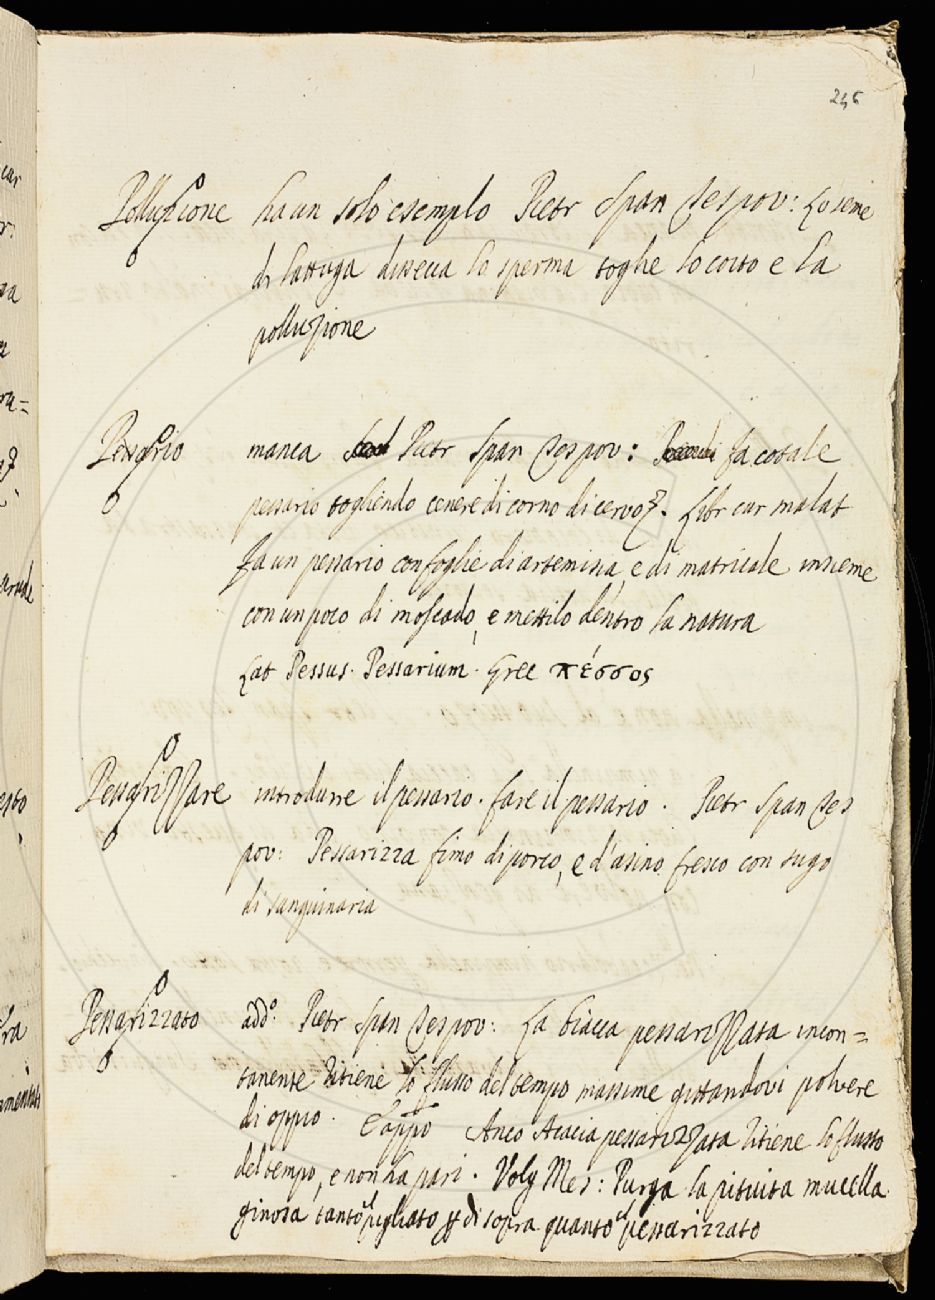 246
Polluzione ha un solo esemplo Pietr Span Tes pov: Lo seme
di lattuga dissecca lo sperma toglie lo coito e la
polluzione
Pessario manca Pietr Span Tes pov: fa cotale
pessario togliendo cenere di corno di cervo. Libr cur malat
fa un pessario con foglie di artemisia, e di matricale insieme
con un poco di moscado, e mettilo dentro la natura
Lat Pessus. Pessarium. Grec πέσσος
Pessarizzare introdurre il pessario. fare il pessario. Pietr Span Tes
pov: Pessarizza fimo di porco, e d'asino fresco con sugo
di sanguinaria
Pessarizzato add. Pietr Span Tes pov: La biacca pessarizzata incon=
tanente ritiene lo flusso del tempo massime gittandovi polvere
di oppio. E appo Anco Acacia pessarizzata ritiene lo flusso
del tempo, e non ha pari. Volg Mes: Purga la pituita mucella
ginosa tanto il pigliato di sopra quanto il pessarizzato